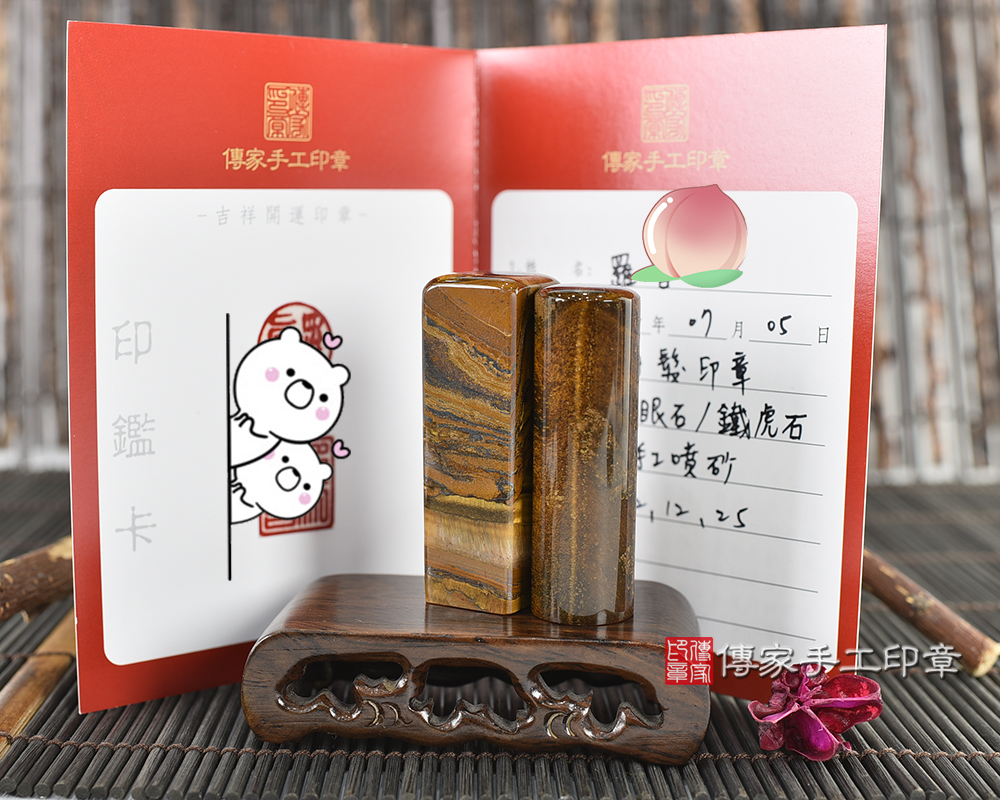 傳家手工印章
-吉祥開運印章-
印鑑卡
傳家手工印章
姓 名: 羅
年 07 月 05 日
髮印章
眼石/鐵虎石
手工噴砂
2,12,25
傳家印章
傳家手工印章